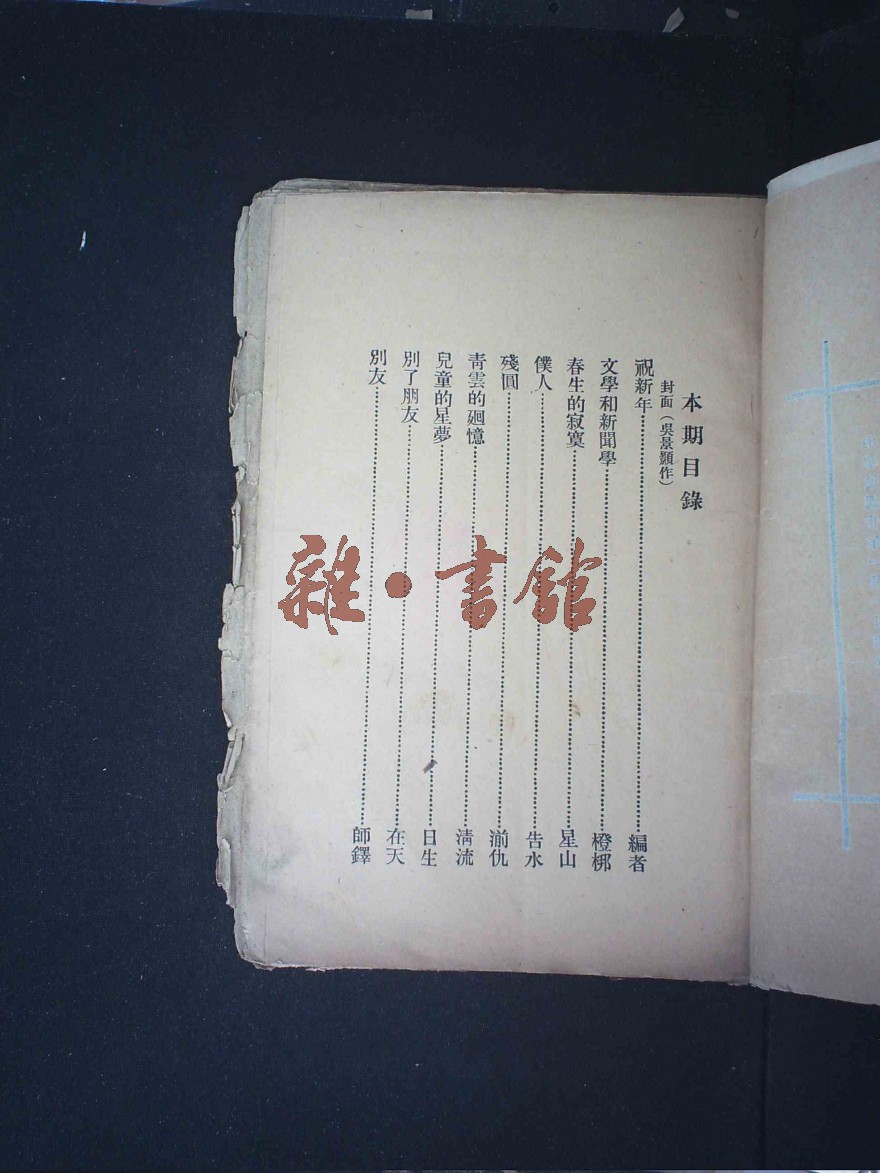 本期目錄
封面（吳景顥作）
祝新年 編者
文學和新聞學 橙梆
春生的寂寞 星山
僕人 告水
殘圓 湔仇
靑雲的廻憶 淸流
兒童的星夢 日生
別了朋友 在天
別友 師鐸
雜·書館